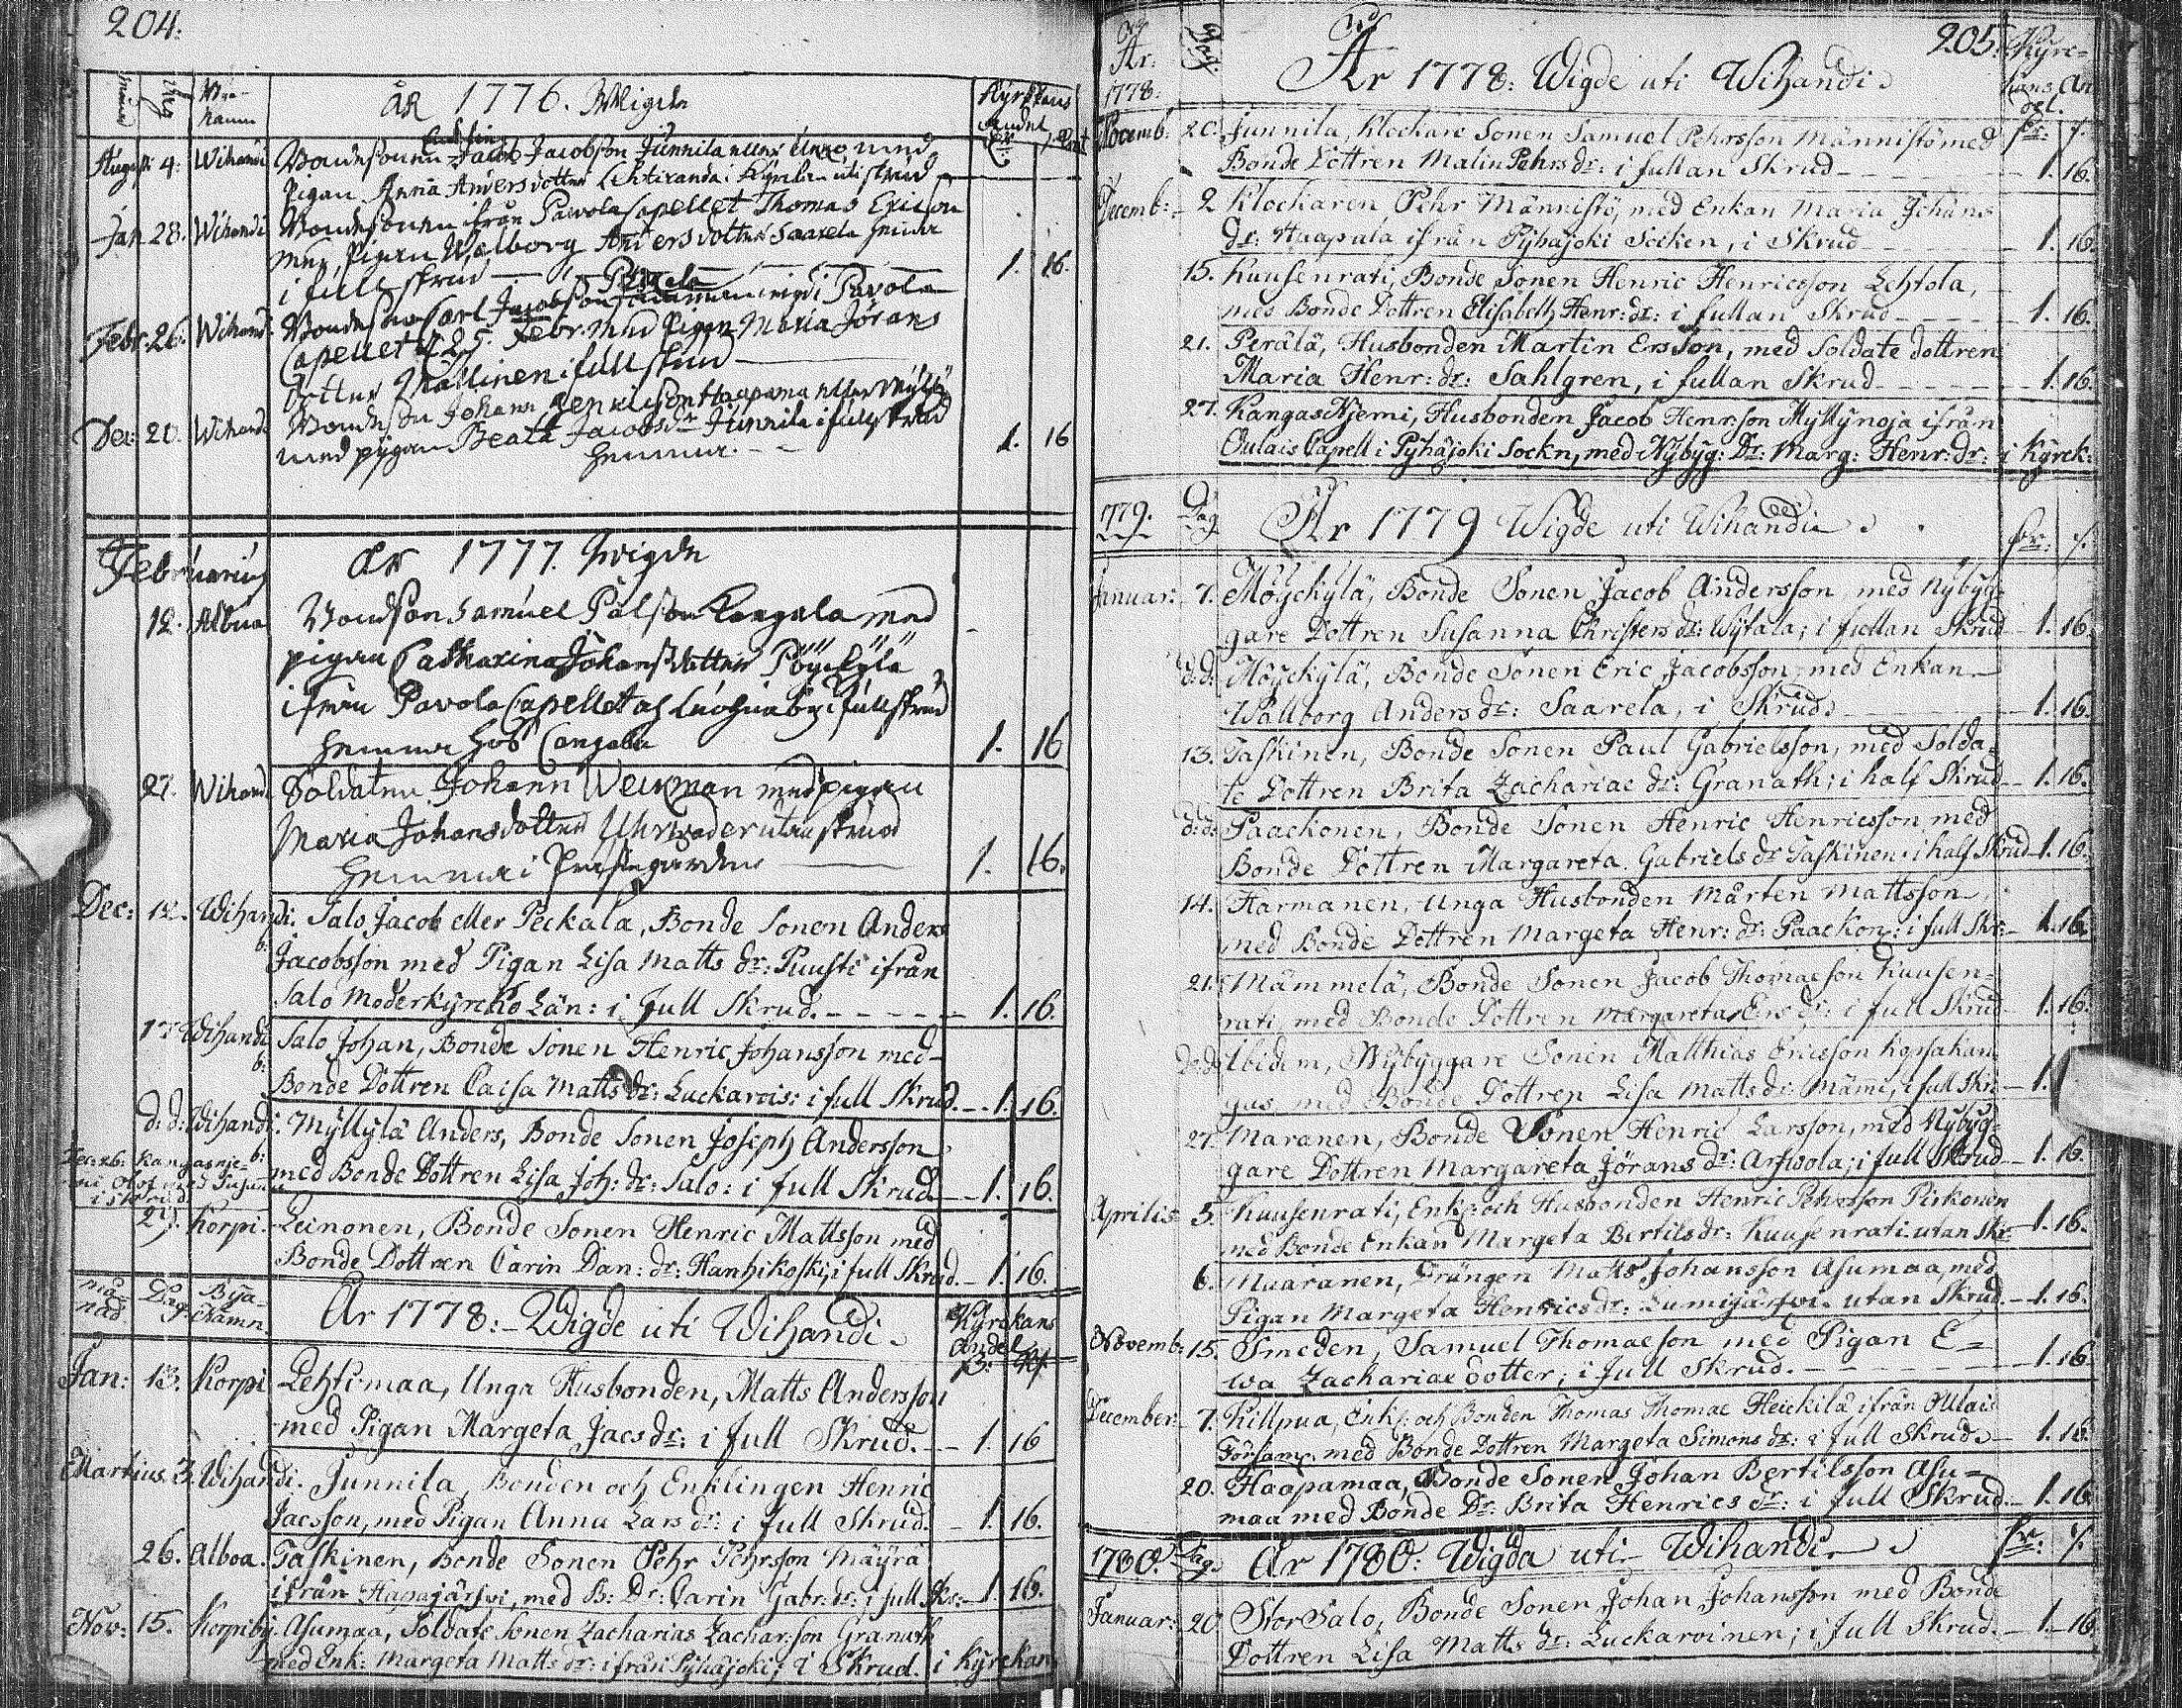 204.
Dag
År 1776. Wigde
Kyrkans
Andel
August 4. Wihandi Bondesonen Jacob Jacobson Junnila med
Pigan Anna Andersdotter Lehtiranda
Jan. 28. Wihandi Bondesonen ifrån Pavola Capellet Thomas Ericson
med Pigan Walborg Andersdotter Saarela hemma
i full skrud 1. 16.
Febr. 26. Wihandi Bondeson Carl Jacobson wigd i Pavola
Capellet d. 25. Febr. med Pigan Maria Jörans
dotter Mallinen i full skrud
Dec: 20. Wihandi Bondeson Johan Henricson Haapama eller
med pigan Beata Jacobs dr Junnila i full skrud
hemma. 1. 16
Februarius
År 1777. Wigde
12. Albua Bondson Samuel Pålson Kangala med
pigan Catharina Johans dotter Pöyckylä
ifrån Pavola Capellet af Luohua by i full skrud
hemma hos Cangala 1. 16
27. Wihand Soldaten Johann Weckman med pigan
Maria Johansdotter utan skrud
hemma i Prästegården 1. 16.
Dec: 12. Wihandi b: Salo Jacob eller Peckala, Bonde Sonen Anders
Jacobsson med Pigan Lisa Matts dr: Puusti ifrån
Salo Moderkyrcko Län: i full Skrud. 1. 16.
17. Wihandi b: Salo Johan, Bonde Sonen Henric Johansson med
Bonde Dottren Caisa Matts dr: Luckarois: i full Skrud. 1. 16.
d: d: Wihandi b: Myllylä Anders, Bonde Sonen Joseph Andersson
med Bonde Dottren Lisa Joh: dr: Salo: i full Skrud. 1. 16.
Dec: 26: Kangasnie-
mi Olof med Susan
i skrud
27. Korpi. Leinonen, Bonde Sonen Henric Mattsson med
Bonde Dottren Carin Dan: dr: Hanhikoski; i full Skrud. 1. 16.
Må-
nad Dag. Bya-
namn. År 1778: Wigde uti Wihandi. Kyrckans
Andel
Jan: 13. Korpi Lehtimaa, Unga Husbonden, Matts Andersson
med Pigan Margeta Jacs dr: i full Skrud. 1. 16
Martius 3. Wihandi. Junnila, Bonden och Enklingen Henric
Jacsson, med Pigan Anna Lars dr: i full Skrud. 1. 16.
26. Alboa. Taskinen, Bonde Sonen Pehr Pehrsson Mäyrä
ifrån Hapajärfvi, med B: Dr: Carin Gabr: dr: i full Skr: 1. 16.
Nov: 15. Korpiby. Asumaa, Soldate Sonen Zacharias Zachar:son Granath
med Enk: Margeta Matts dr: ifrån Pyhäjoki; i Skrud. i Kyrckan
205.
År: 1778. Dag. År 1778: Wigde uti Wihandi. Kyrc-
kans An
del.
Novemb: 20. Junnila, Klockare Sonen Samuel Pehrsson Männistö med
Bonde Dottren Malin Pehrs dr: i fullan Skrud 1. 16.
Decemb: 2 Klockaren Pehr Männistö, med Enkan Maria Johans
dr: Haapala ifrån Pyhäjoki Socken, i Skrud 1. 16.
15. Kuusenrati, Bonde Sonen Henric Henricsson Lehtola,
med Bonde Dottren Elisabeth Henr: dr: i fullan Skrud 1. 16.
21. Perälä, Husbonden Martin Ersson, med Soldate dottren
Maria Henr: dr: Sahlgren, i fullan Skrud 1. 16.
27. Kangas Njemi, Husbonden Jacob Henr:son Myllynoja ifrån
Oulais Capell i Pyhäjoki Sockn, med Nybyg: Dr: Marg: Henr: dr: i Kyrck:
1779. Dag År 1779 Wigde uti Wihandi.
Januar: 7. Möyckylä, Bonde Sonen Jacob Andersson, med Nybyg-
gare Dottren Susanna Christers dr: Wytala; i fullan Skrud 1. 16.
d: d: Möyckylä, Bonde Sonen Eric Jacobsson, med Enkan
Wallborg Anders dr: Saarela, i Skrud. 1. 16.
13. Taskinen, Bonde Sonen Paul Gabrielsson, med Solda-
te Dottren Brita Zachariae dr: Granath; i half Skrud 1. 16.
d: d: Paackonen, Bonde Sonen Henric Henricsson med
Bonde Dottren Margareta Gabriels dr Taskinen: i half Skrud 1. 16.
14. Harmanen, Unga Husbonden Mårten Mattsson,
med Bonde Dottren Margeta Henr: dr: Paackon: i full Skr: 1. 16.
21. Mämmelä, Bonde Sonen Jacob Thomaeson Kuusen-
rati, med Bonde Dottren Margareta Ers dr: i full Skrud 1. 16.
d: d: Ibidem, Nybyggare Sonen Matthias Ericsson Kopsakan-
gas, med Bonde Dottren Lisa Matts dr: Mämi, i full Skr: 1.
27. Maranen, Bonde Sonen Henric Larsson, med Nybyg-
gare Dottren Margareta Jörans dr: Arfwola; i full Skrud 1. 16.
Aprilis 5. Kuusenrati, Enk: och Husbonden Henric Pehrsson Piskonen
med Bonde Enkan Margeta Bertils dr: Kuusenrati. utan Skr: 1. 16.
6. Maaranen, Drängen Matts Johansson Asumaa, med
Pigan Margeta Henrics dr: Lumijärfvi. utan Skrud. 1. 16.
Novemb: 15. Smeden, Samuel Thomaeson med Pigan E-
wa Zachariae dotter; i full Skrud. 1. 16
December: 7. Killpua, Enk: och Bonden Thomas Thomae Heickilä ifrån Oulais
Församl. med Bonde Dottren Margeta Simons dr: i full Skrud. 1. 16
20. Haapamaa, Bonde Sonen Johan Bertilsson Asu-
maa med Bonde Dr: Brita Henrics dr: i full Skrud. 1. 16
1780. Dag. År 1780: Wigda uti Wihandi.
Januar: 20 Stor Salo, Bonde Sonen Johan Johansson med Bonde
Dottren Lisa Matts dr: Luckaroinen; i full Skrud. 1. 16